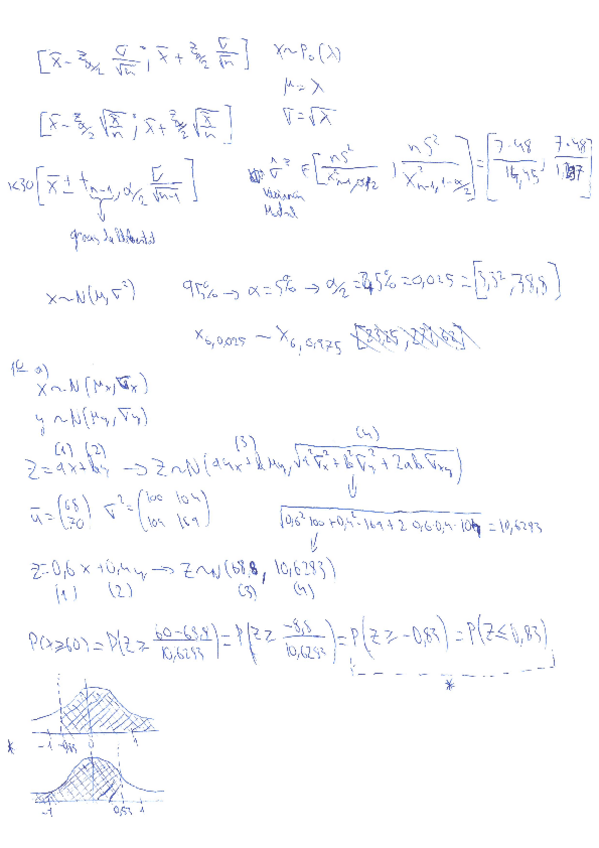 [x̄ - z α/2 σ/√n ; x̄ + z α/2 σ/√n] x ~ Po(λ)
μ = λ
[x̄ - z α/2 √(x̄/n) ; x̄ + z α/2 √(x̄/n)] σ = √λ
<30 [x̄ ± t n-1, α/2 σ/√n-1] σ² ∈ [nS²/χ² n-1, α/2 ; nS²/χ² n-1, 1-α/2] = [7·48/14,45 ; 7·48/
x ~ N(μ, σ²) 95% → α = 5% → α/2 = 2,5% = 0,025 = [3,32, 38,8]
x 6, 0,025 ~ x 6, 0,975
a)
x ~ N(μx, σx)
y ~ N(μy, σy)
(1) (2) (3) (4)
Z = ax + by → Z ~ N(aμx + bμy, √(a²σx² + b²σy² + 2abσxy))
ū = (68 70) σ² = (100 104 104 169) √(0,6²·100 + 0,4²·169 + 2·0,6·0,4·104) = 10,6293
Z = 0,6x + 0,4y → Z ~ N(68,8, 10,6293)
(1) (2) (3) (4)
P(x ≥ 60) = P(Z ≥ (60 - 68,8)/10,6293) = P(Z ≥ -8,8/10,6293) = P(Z ≥ -0,83) = P(Z ≤ 0,83)
*
-1 -0,83 0 1
*
-1 0,83 1